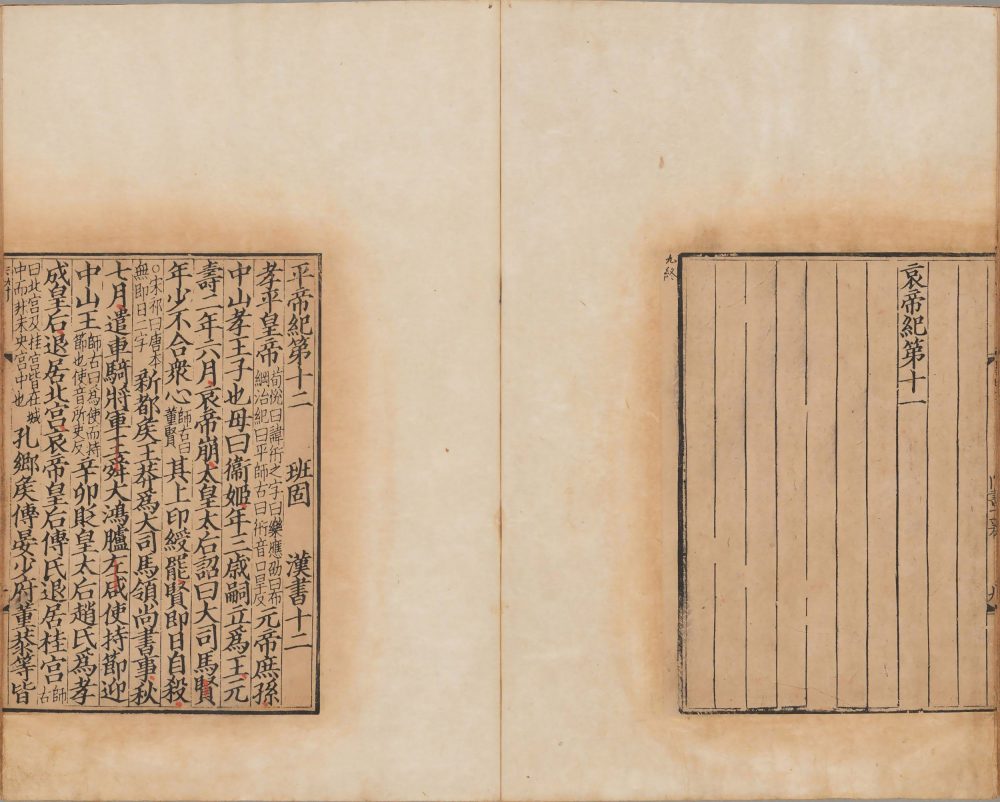 哀帝紀第十一
九終
平帝紀第十二 班固 漢書十二
孝平皇帝荀恱曰諱衎之字曰樂應劭曰布綱治紀曰平師古曰衎音口旱反元帝庶孫
中山孝王子也母曰衞姬年三歲嗣立爲王元
壽二年六月哀帝崩太皇太后詔曰大司馬賢
年少不合衆心師古曰董賢其上印綬罷賢即日自殺
○宋祁曰唐本無即日二字新都矦王莽爲大司馬領尚書事秋
七月遣車騎將軍王舜大鴻臚左咸使持節迎
中山王師古曰爲使而持節也使音所吏反辛卯貶皇太后趙氏爲孝
成皇后退居北宮哀帝皇后傅氏退居桂宮師古
曰北宮及桂宮皆在城中而非未央宮中也孔鄉矦傅晏少府董恭等皆